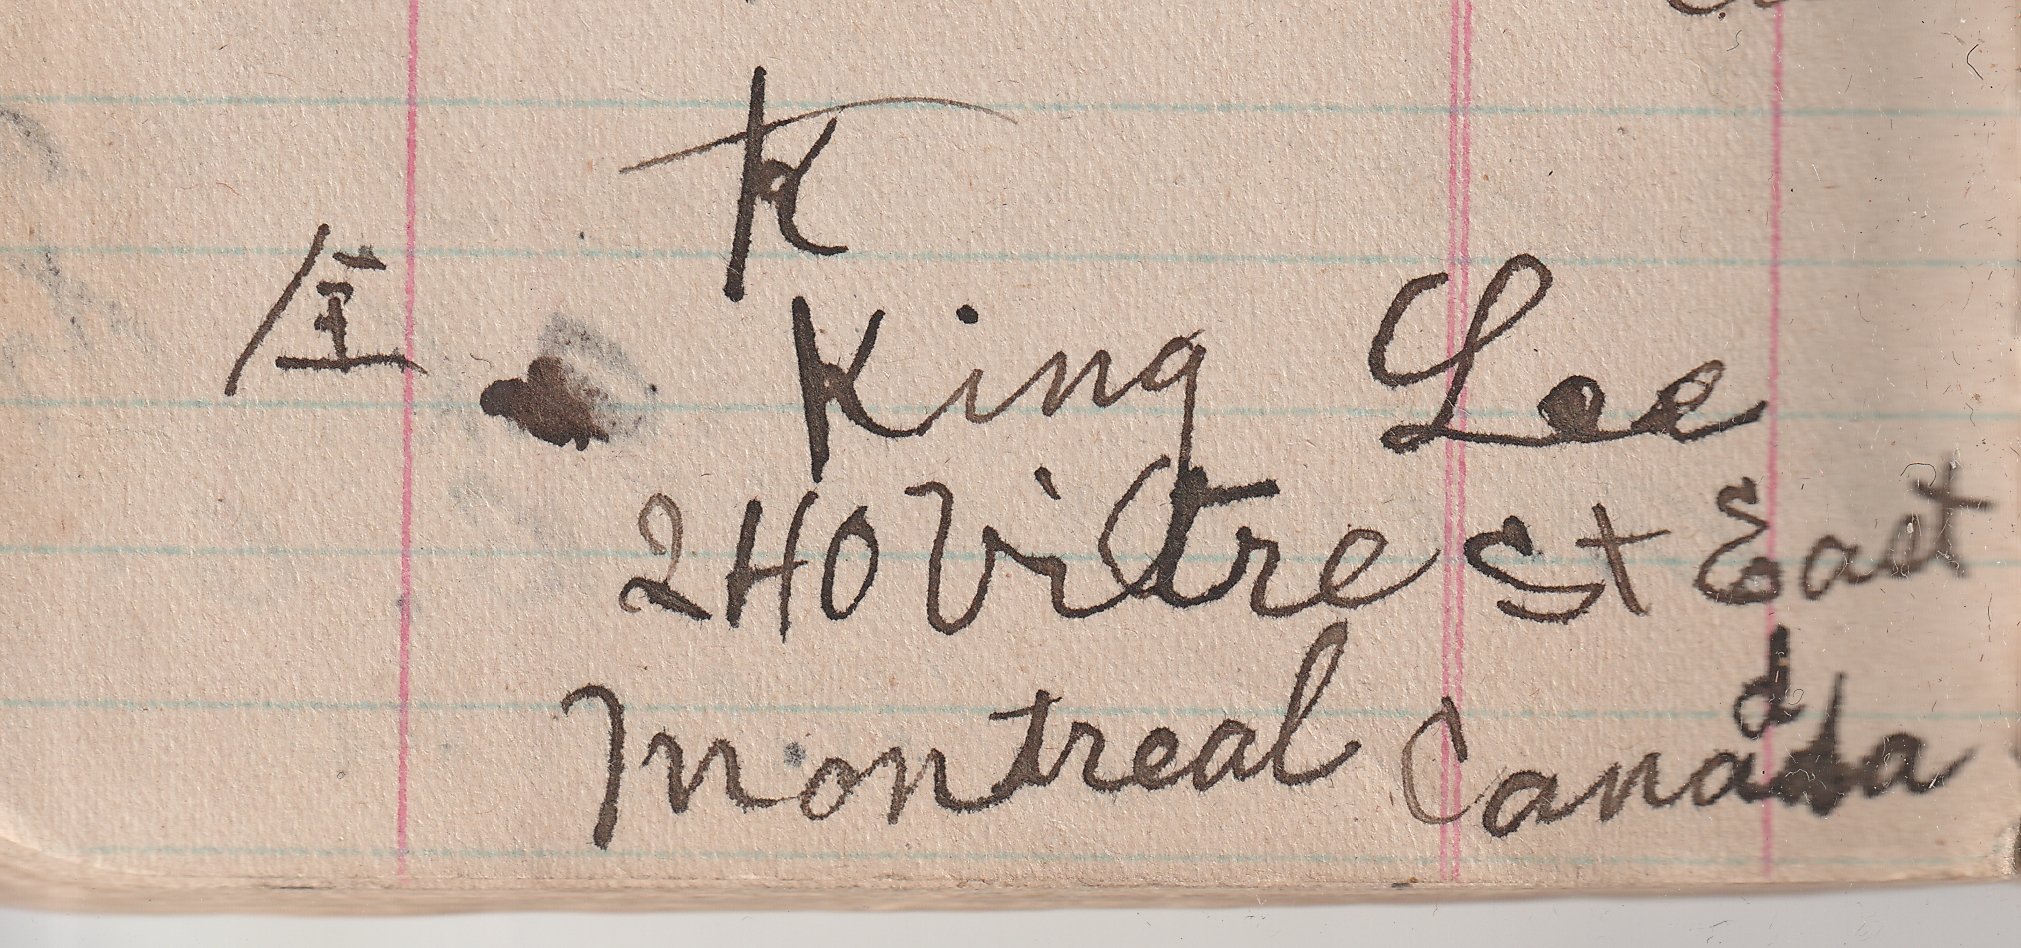 K
King Lee
240 Vitre St East
Montreal Canada